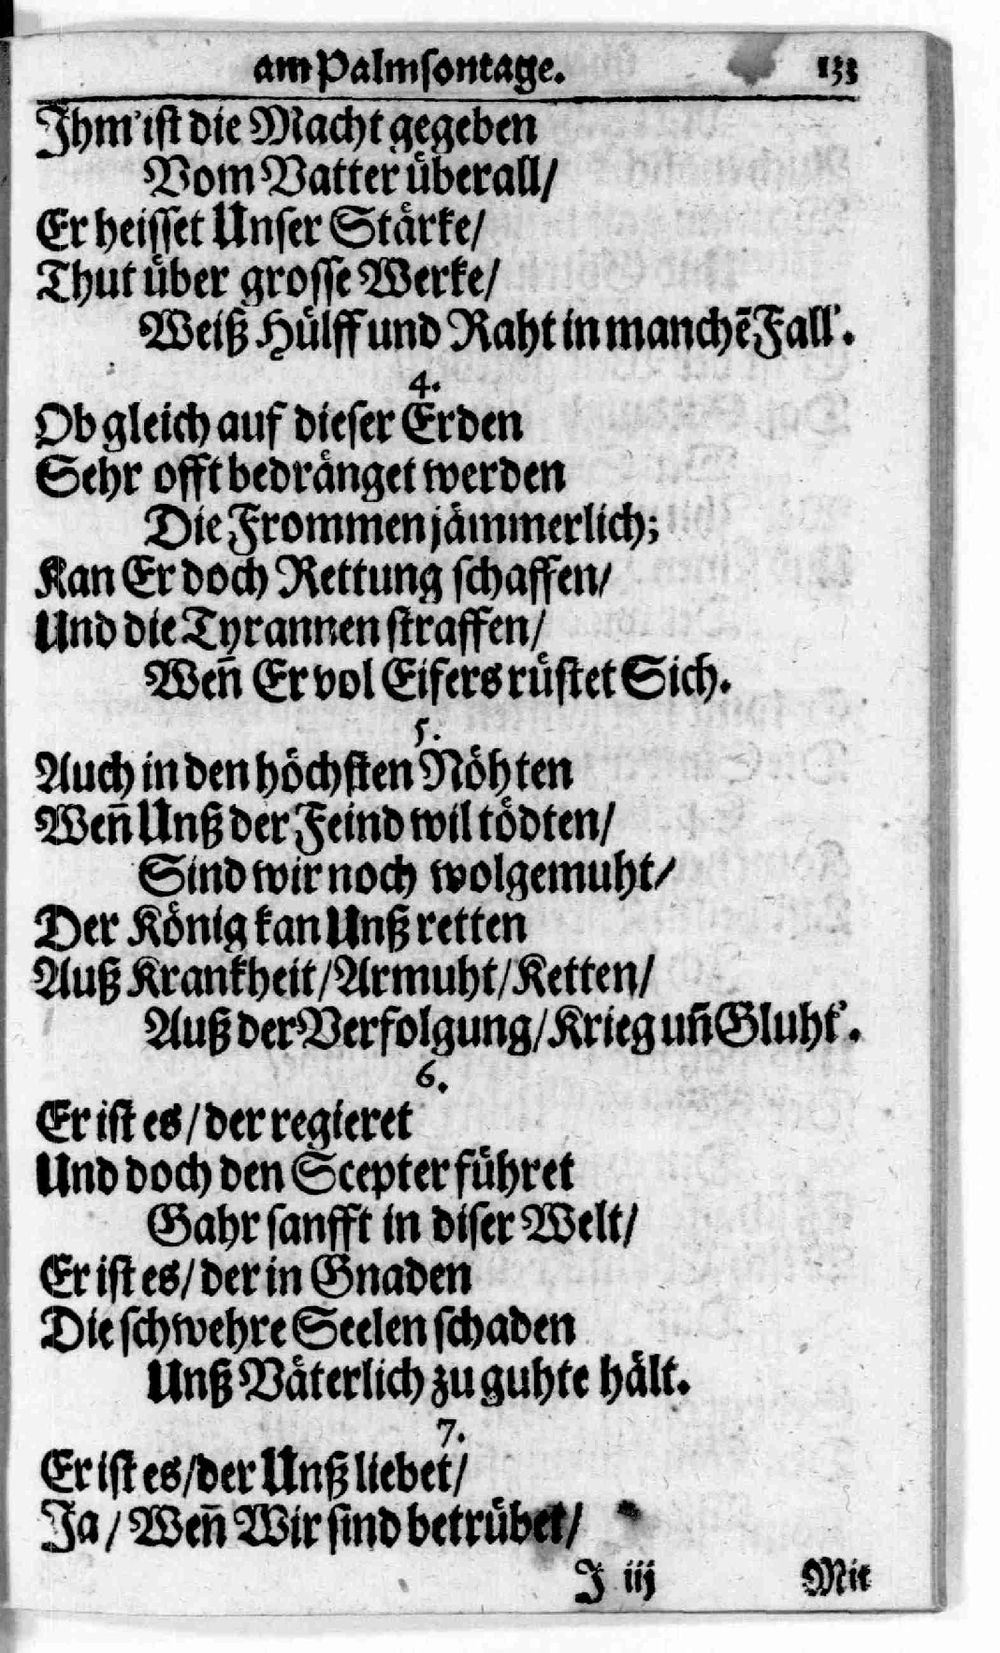 am Palmsontage. 133
Ihm' ist die Macht gegeben
Vom Vatter überall/
Er heisset Unser Stärke/
Thut über grosse Werke/
Weiß Hülff und Raht in manchē Fall'.
4.
Ob gleich auf dieser Erden
Sehr offt bedränget werden
Die Frommen jämmerlich;
Kan Er doch Rettung schaffen/
Und die Tyrannen straffen/
Weñ Er vol Eifers rüstet Sich.
5.
Auch in den höchsten Nöhten
Weñ Unß der Feind wil tödten/
Sind wir noch wolgemuht/
Der König kan Unß retten
Auß Krankheit/Armuht/Ketten/
Auß der Verfolgung/Krieg uñ Gluht'.
6.
Er ist es/der regieret
Und doch den Scepter führet
Gahr sanfft in diser Welt/
Er ist es/der in Gnaden
Die schwehre Seelen schaden
Unß Väterlich zu guhte hält.
7.
Er ist es/der Unß liebet/
Ja/Weñ Wir sind betrübet/
J iij Mit